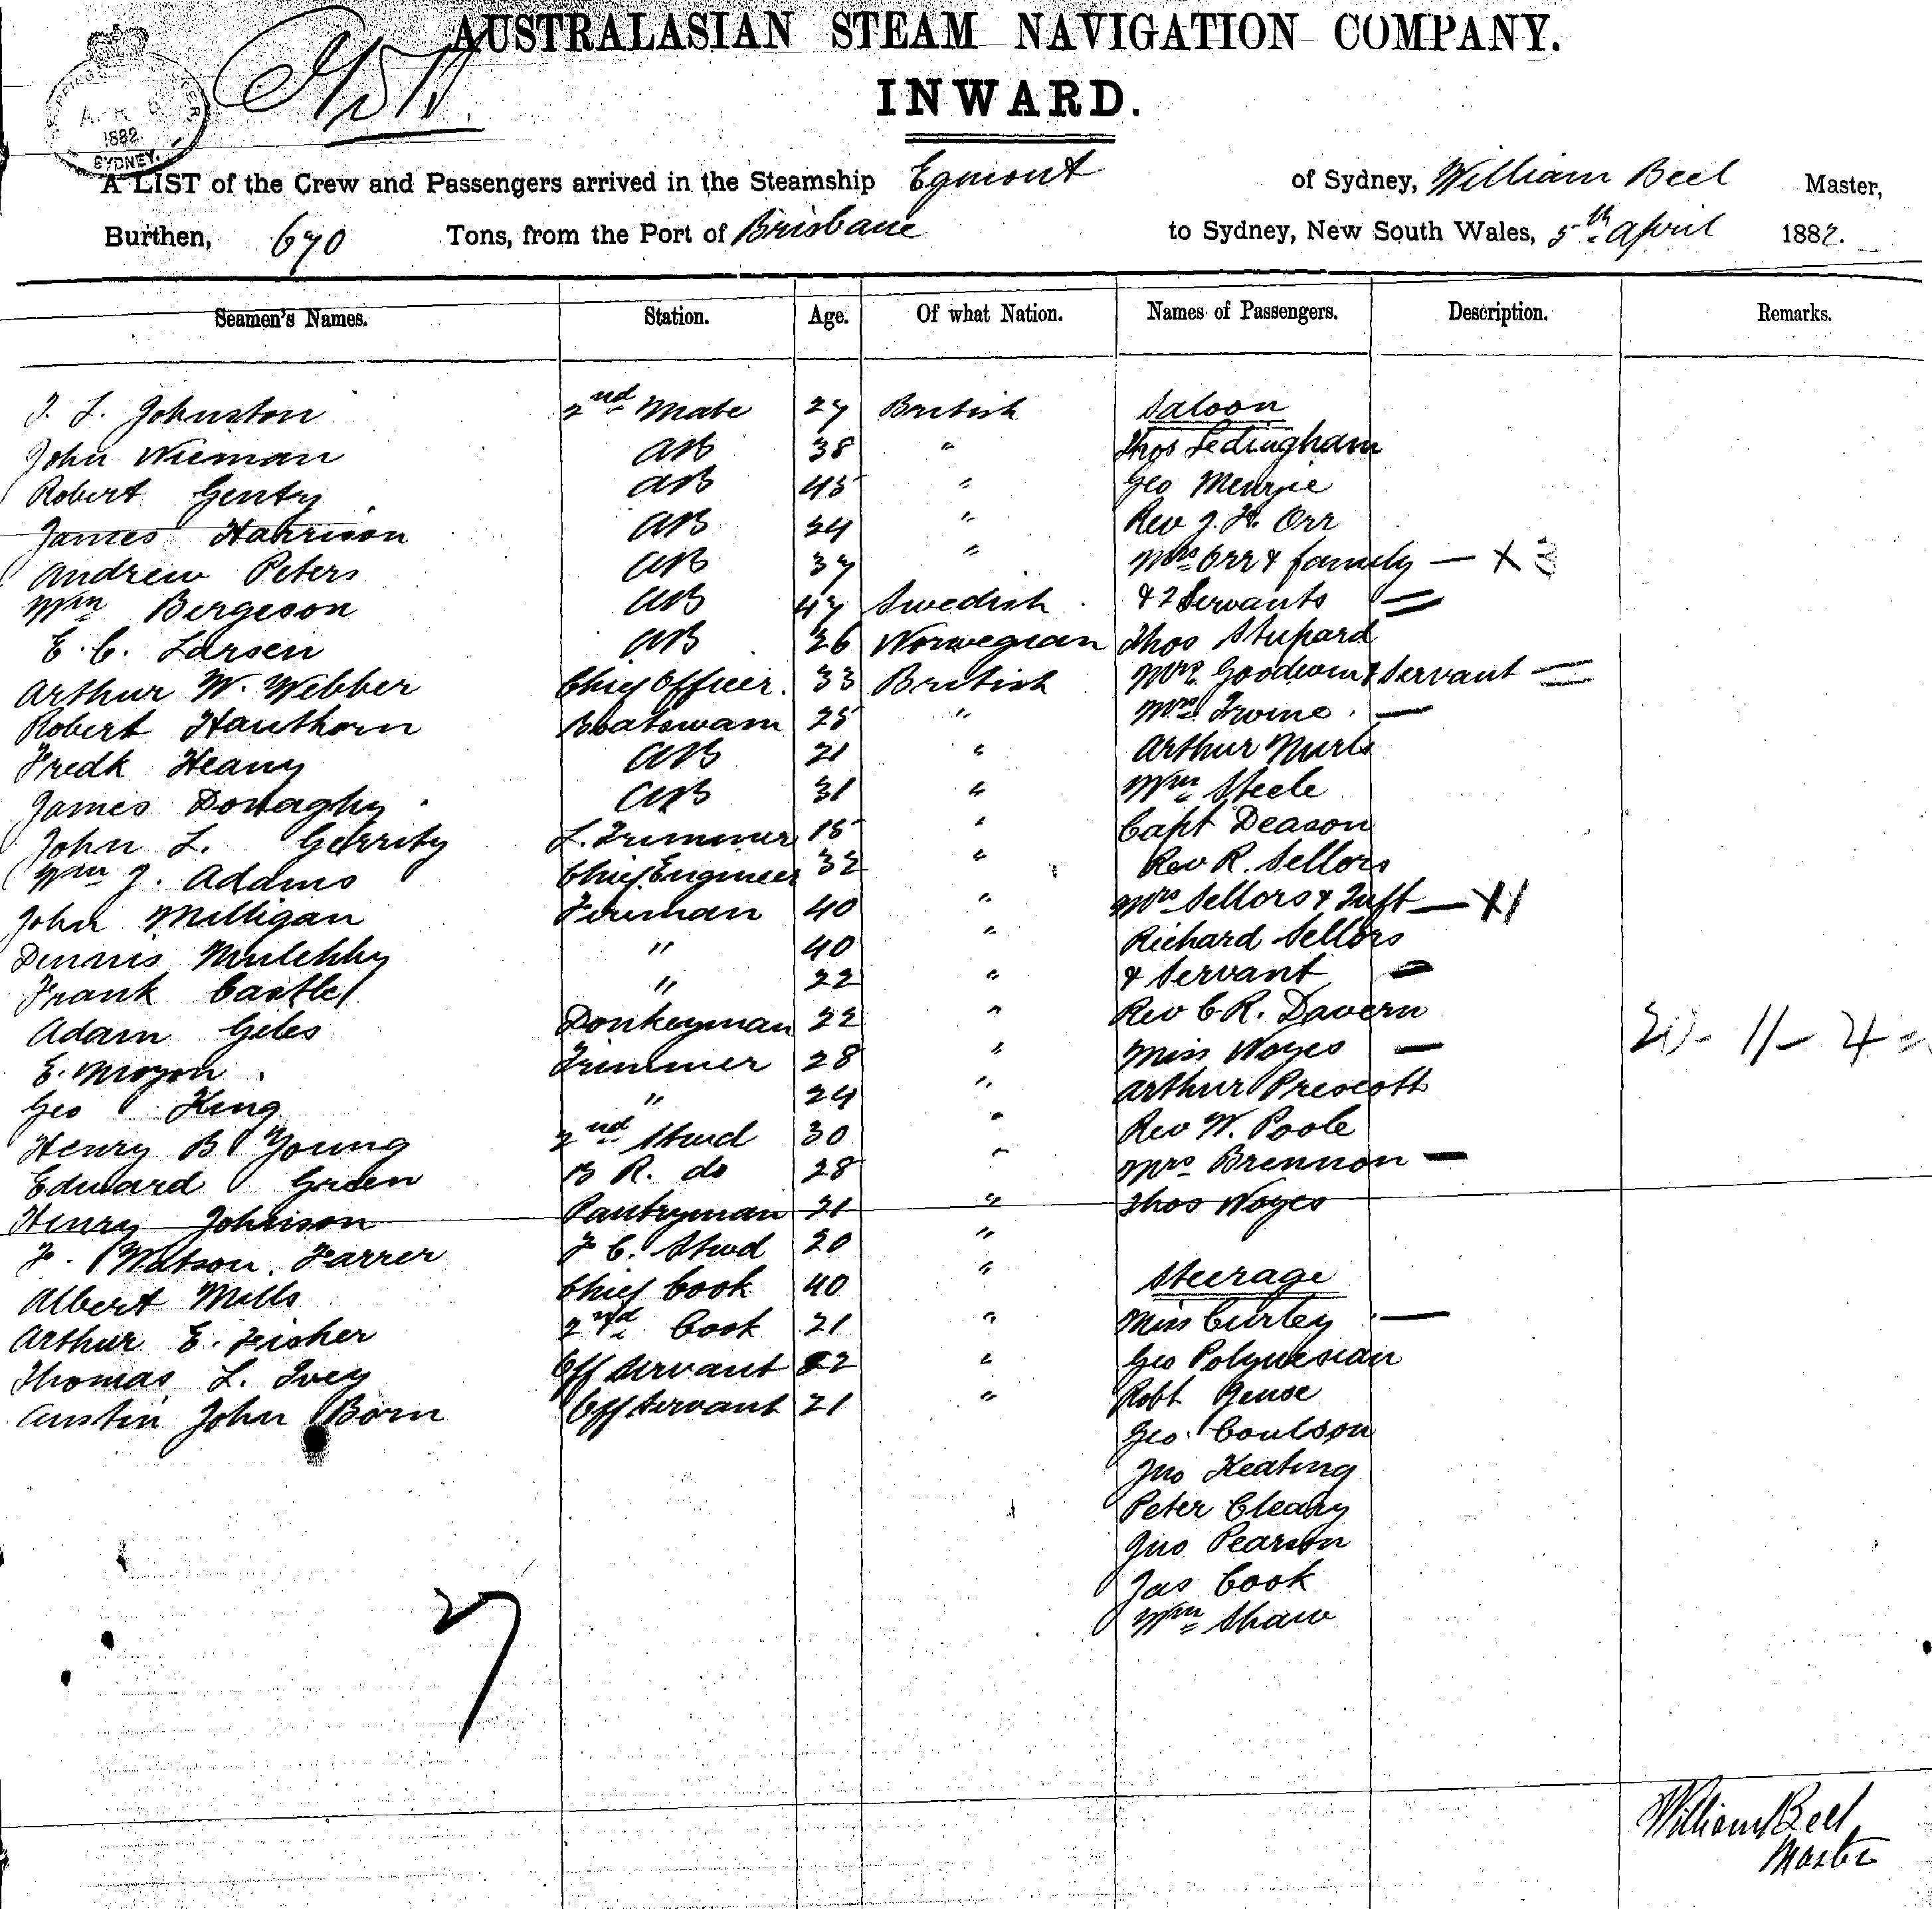 AUSTRALASIAN STEAM NAVIGATION COMPANY.
INWARD.
1882.
SYDNEY.
A LIST of the Crew and Passengers arrived in the Steamship Egmont of Sydney, William Beel Master,
Burthen, 670 Tons, from the Port of Brisbane to Sydney, New South Wales, 5th April 1882.
Seamen's Names. Station. Age. Of what Nation. Names of Passengers. Description. Remarks.
J. L. Johnston 2nd Mate 27 British Saloon
John Wieman AB 38 " Thos Ledingham
Robert Genty AB 45 " Geo Menzie
James Harrison AB 24 " Rev J. H. Orr
Andrew Peters AB 37 " Mrs Orr & family — X 3
Wm Bergeson AB 47 Swedish & 2 Servants =
E. C. Larsen AB 26 Norwegian Thos Shepard
Arthur W. Webber Chief Officer. 33 British Mrs Goodwin & Servant =
Robert Hawthorn Boatswain 25 " Mrs Irvine. —
Fredk Heany AB 21 " Arthur
James Donaghy AB 31 " Wm Steele
John L. Gerrity L. Trimmer 18 " Capt Deason
Wm J. Adams Chief Engineer 32 " Rev R. Sellors
John Milligan Fireman 40 " Mrs Sellors & Inft — X1
Dennis " 40 " Richard Sellors
Frank Castle " 22 " & Servant —
Adam Giles Donkeyman 22 " Rev C. R. Davern
E. Moyon. Trimmer 28 " Miss Noyes —
Geo King " 24 " Arthur Prescott
Henry B Young 2nd Stwd 30 " Rev W. Poole
Edward Green B R. do 28 " Mrs Brennon —
Henry Johnson Pantryman 21 " Thos Noyes
F. Watson. Farrer F C. Stwd 20 "
Albert Mills Chief Cook 40 " Steerage
Arthur E. Fisher 2nd Cook 21 " Miss Curley —
Thomas L. Ivey Off Servant 22 " Geo Polynesian
Austin John Born Off Servant 21 " Robt
Geo Coulson
Jno Keating
Peter Cleary
Jno Pearson
Jas Cook
Wm Shaw
27
William Beel
Master